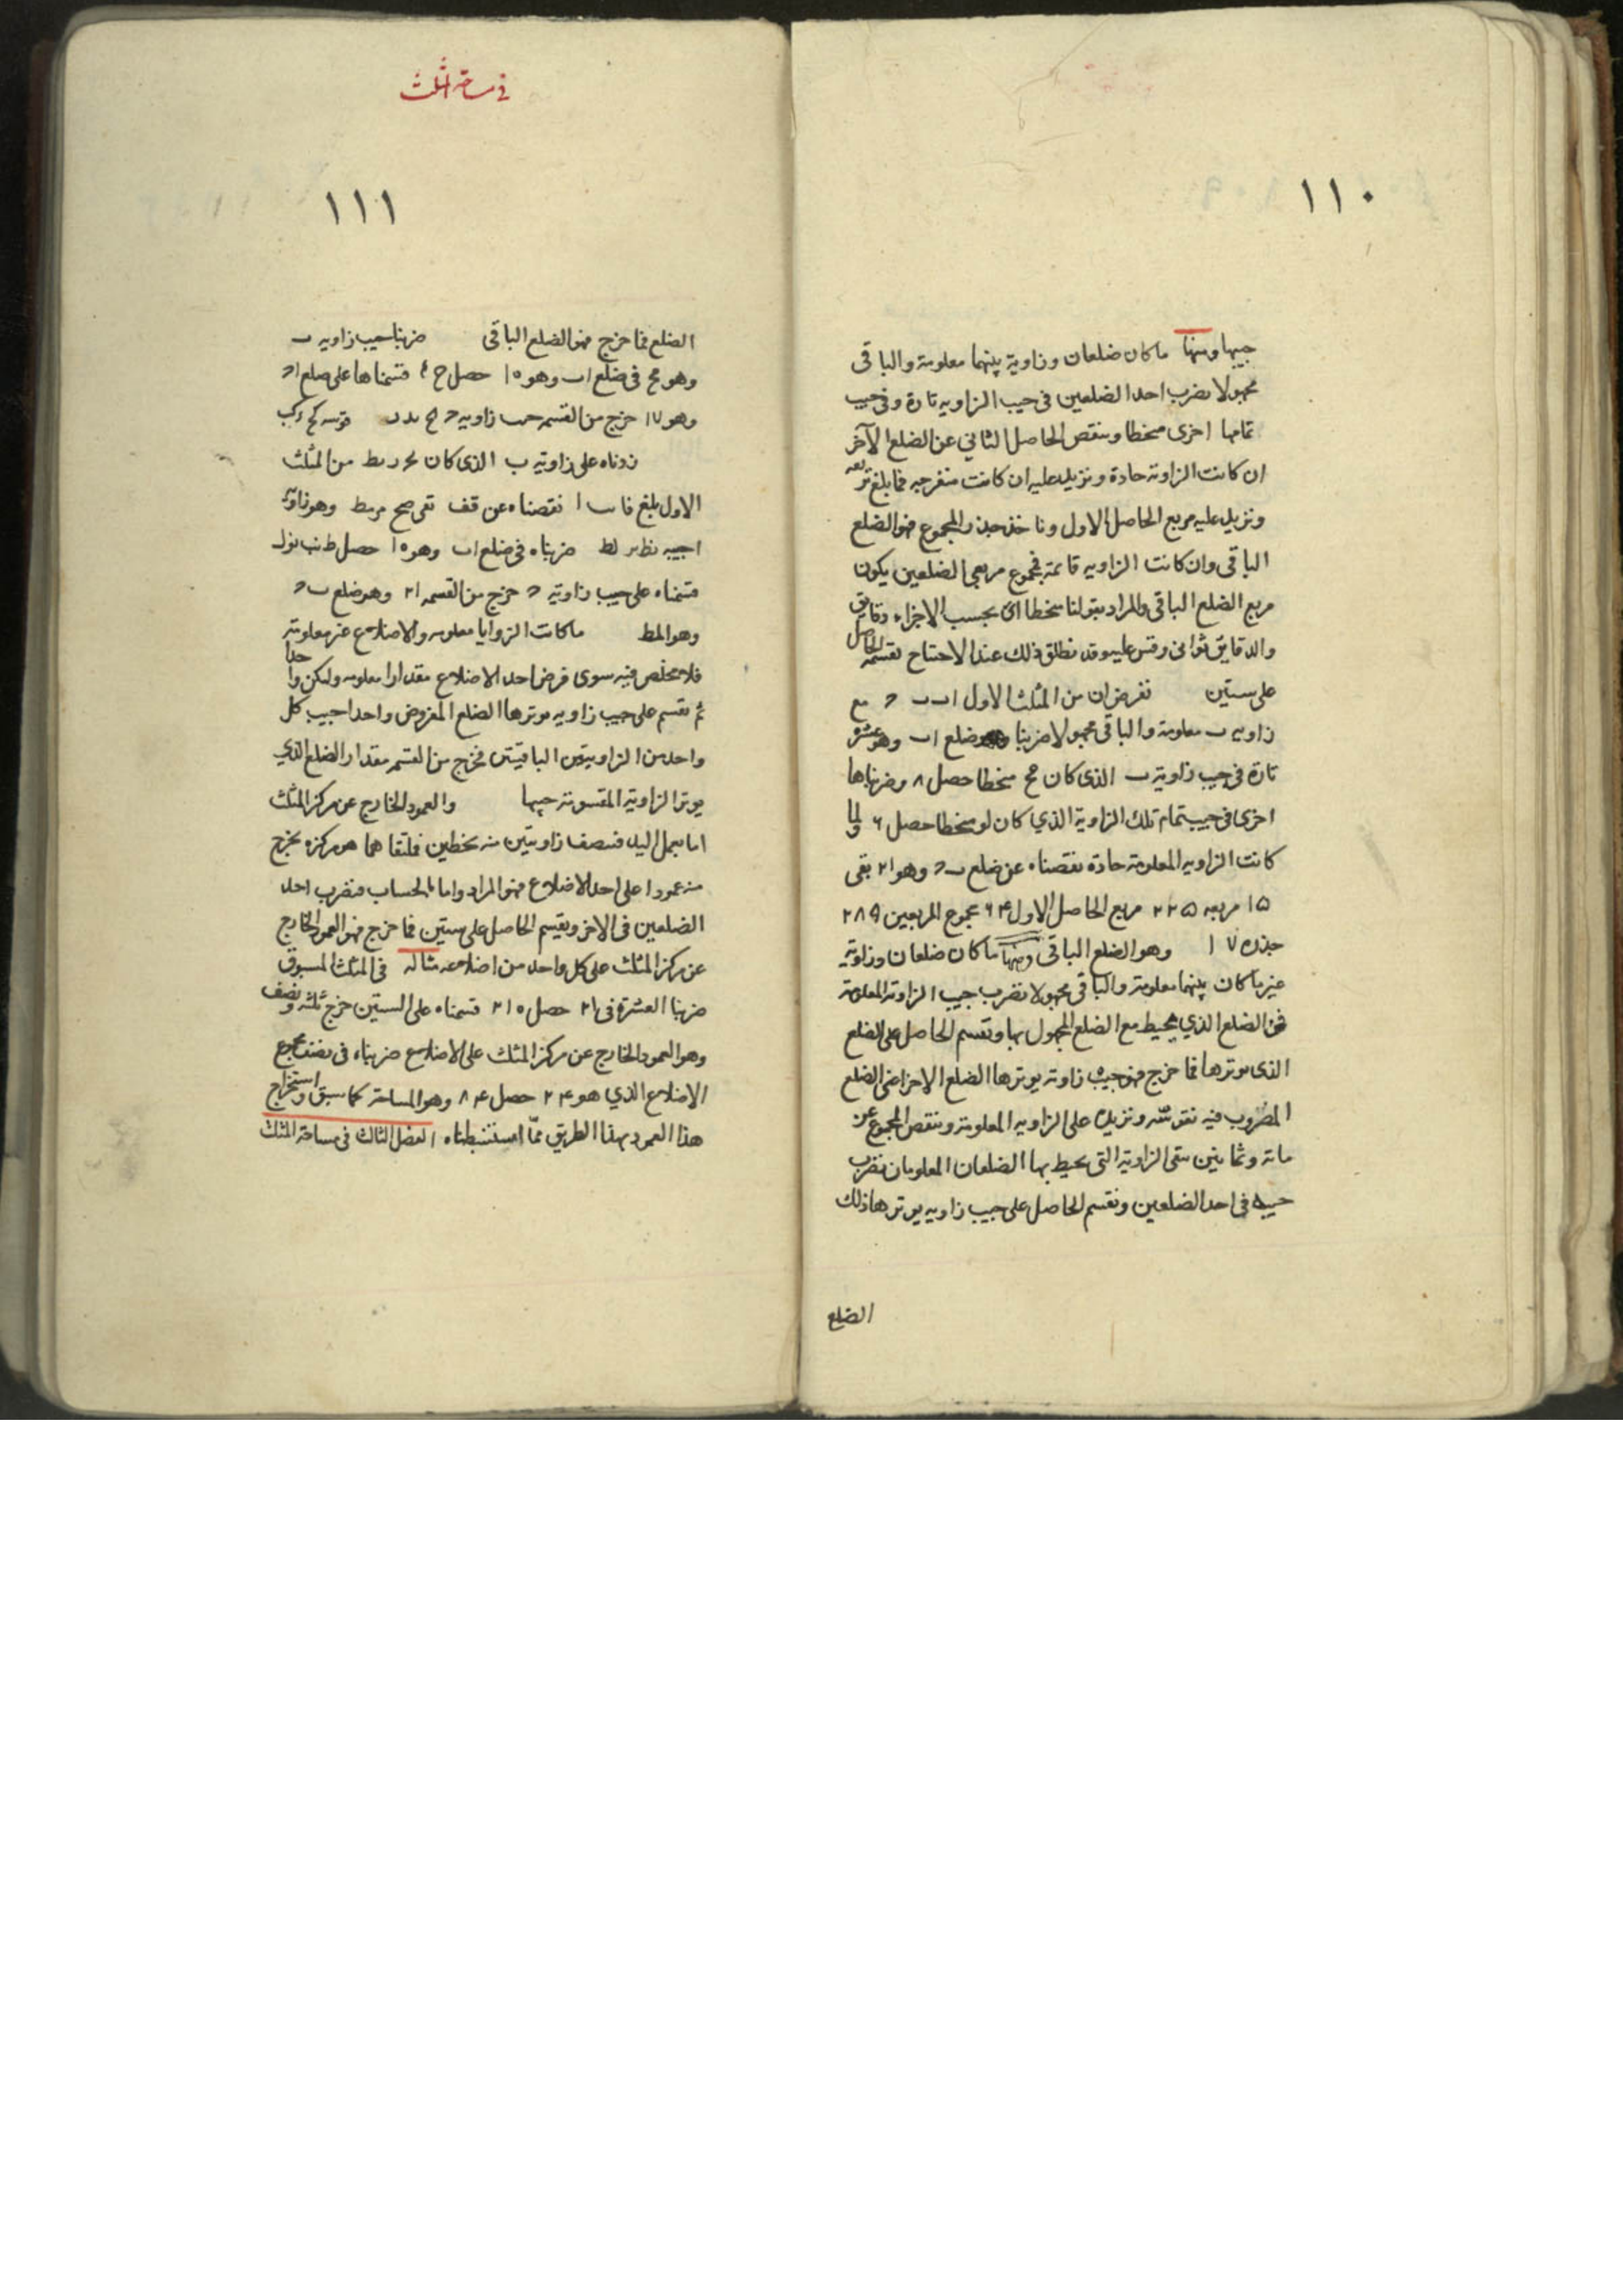 ١١٠
جيبها ومنها ما كان ضلعان وزاوية بينهما معلومة والباقى
مجهولا نضرب احد الضلعين فى جيب الزاويه تارة وفى جيب
تمامها اخرى منحطا وننقص الحاصل الثانى عن الضلع الآخر
ان كانت الزاوية حادة ونزيد عليه ان كانت منفرجه فما بلغ نربعه
ونزيد عليه مربع الحاصل الاول وناخذ جذر المجموع فهو الضلع
الباقى وان كانت الزاويه قائمة فمجموع مربعى الضلعين يكون
مربع الضلع الباقى والمراد بقولنا منحطا اى بحسب الاجزاء دقايق
والدقايق ثوانى وقس عليه وقد نطلق ذلك عند الاحتياج نقسمه الحاصل
على ستين نفرض ان من المثلث الاول اب ب ح مع
زاويه ب معلومة والباقى مجهولا ضربنا ضلع اب وهو عشرة
تارة فى جيب زاوية ب الذى كان مح منحطا حصل ٨ وضربناها
اخرى فى جيب تمام تلك الزاوية الذي كان لو منحطا حصل ٦ ولما
كانت الزاويه المعلومة حادة نقصناه عن ضلع ب ح وهو ٢١ بقى
١٥ مربعه ٢٢٥ مربع الحاصل الاول ٦٤ مجموع المربعين ٢٨٩
جذره ١٧ وهو الضلع الباقى ومنها ما كان ضلعان وزاوية
غير ما كان بينهما معلومة والباقى مجهولا نضرب جيب الزاوية المعلومة
فى الضلع الذي يحيط مع الضلع المجهول بها ونقسم الحاصل على الضلع
الذى يوترها فما خرج فهو جيب زاوية يوترها الضلع الاخر اعنى الضلع
المضروب فيه نقوسه ونزيده على الزاويه المعلومة وننقص المجموع عن
مائة وثمانين تبقى الزاوية التى يحيط بها الضلعان المعلومان نضرب
جيبه فى احد الضلعين ونقسم الحاصل على جيب زاويه يوترها ذلك
الضلع
فى مساحة المثلث
١١١
الضلع فما خرج فهو الضلع الباقى ضربنا جيب زاويه ب
وهو مح فى ضلع اب وهو ١٠ حصل قسمناها على ضلع اح
وهو ١٧ خرج من القسمه جيب زاويه ح قوسه
زدناه على زاوية ب الذى كان من المثلث
الاول بلغ نقصناه عن قف بقى وهو زاوية
ا جيبه ضربناه فى ضلع اب وهو ١٠ حصل
قسمناه على جيب زاوية ح خرج من القسمه ٢١ وهو ضلع ب ح
وهو المط ما كانت الزوايا معلومه والاضلاع غير معلومة
فلا مخلص فيه سوى فرض احد الاضلاع مقدارا معلومه وليكن واحدا
ثم نقسم على جيب زاويه يوترها الضلع المفروض واحدا جيب كل
واحد من الزاويتين الباقيتين فخرج من القسم مقدار الضلع الذي
يوتر الزاوية المقسومة جيبها والعمود الخارج عن مركز المثلث
اما بعمل اليد فننصف زاويتين منه بخطين فملتقاهما هو مركزه نخرج
منه عمودا على احد الاضلاع فهو المراد واما بالحساب فنضرب احد
الضلعين فى الاخر ونقسم الحاصل على ستين فما خرج فهو العمود الخارج
عن مركز المثلث على كل واحد من اضلاعه مثاله فى المثلث المسبوق
ضربنا العشرة فى ٢١ حصل ٢١٠ قسمناه على الستين خرج ثلثه ونصف
وهو العمود الخارج عن مركز المثلث على الاضلاع ضربناه فى نصف مجموع
الاضلاع الذي هو ٢٤ حصل ٨٤ وهو المساحة كما سبق واستخراج
هذا العمود بهذا الطريق ممّا استنبطناه الفصل الثالث فى مساحة المثلث